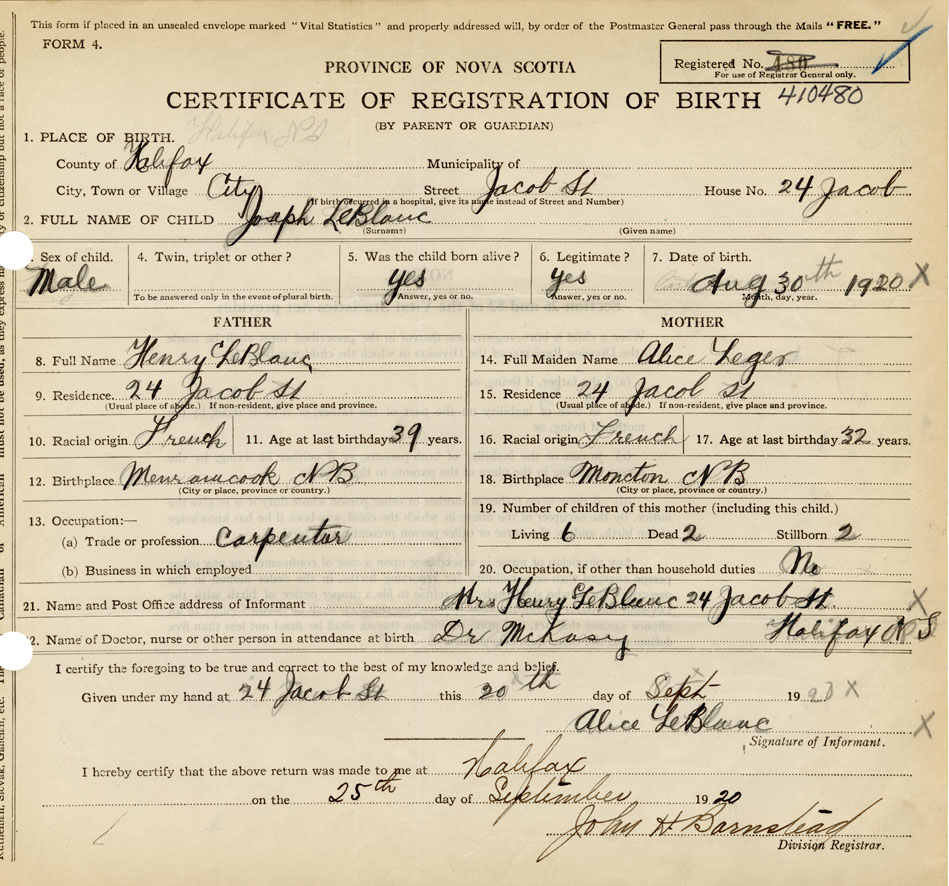 This form if placed in an unsealed envelope marked "Vital Statistics" and properly addressed will, by order of the Postmaster General pass through the Mails "FREE."
FORM 4.
Registered No. 480
For use of Registrar General only.
PROVINCE OF NOVA SCOTIA
CERTIFICATE OF REGISTRATION OF BIRTH 410480
(BY PARENT OR GUARDIAN)
Halifax NS
1. PLACE OF BIRTH.
County of Halifax Municipality of
City, Town or Village City Street Jacob St House No. 24 Jacob
(If birth occurred in a hospital, give its name instead of Street and Number)
2. FULL NAME OF CHILD Joseph LeBlanc
(Surname) (Given name)
. Sex of child. 4. Twin, triplet or other? 5. Was the child born alive? 6. Legitimate? 7. Date of birth.
Male yes yes Aug 30th 1920 X
To be answered only in the event of plural birth. Answer, yes or no. Answer, yes or no. Month, day, year.
FATHER MOTHER
8. Full Name Henry LeBlanc 14. Full Maiden Name Alice Leger
9. Residence. 24 Jacob St 15. Residence 24 Jacob St
(Usual place of abode.) If non-resident, give place and province. (Usual place of abode.) If non-resident, give place and province.
10. Racial origin French 11. Age at last birthday 39 years. 16. Racial origin French 17. Age at last birthday 32 years.
12. Birthplace Menramcook NB 18. Birthplace Moncton NB
(City or place, province or country.) (City or place, province or country.)
13. Occupation:— 19. Number of children of this mother (including this child.)
(a) Trade or profession Carpentar Living 6 Dead 2 Stillborn 2
(b) Business in which employed 20. Occupation, if other than household duties No
21. Name and Post Office address of Informant Mrs Henry LeBlanc 24 Jacob St X
2. Name of Doctor, nurse or other person in attendance at birth Dr Halifax NS
I certify the foregoing to be true and correct to the best of my knowledge and belief.
Given under my hand at 24 Jacob St this 20th day of Sept 1920 X
Alice LeBlanc X
Signature of Informant.
I hereby certify that the above return was made to me at Halifax
on the 25th day of September 1920
John H Barnstead
Division Registrar.